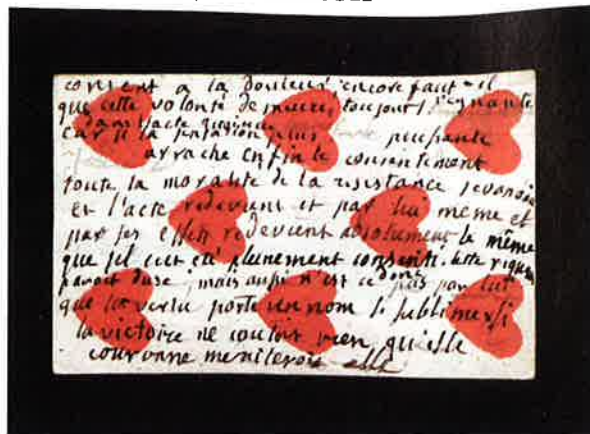 consent a la douleur encore faut-il
que cette volonté de toujours regnante
dans l'acte
car si la passion plus
arrache enfin le consentement
toute la moralité de la resistance
Et l'acte redevient et par lui meme et
par ses effets redevient absolument le même
que s'il eut été pleinement consenti. cette
paroit dure; mais aussi n'est ce donc pas par
que la vertu porte un nom si sublime. Si
la victoire ne coutoit rien quelle
couronne meriteroit elle